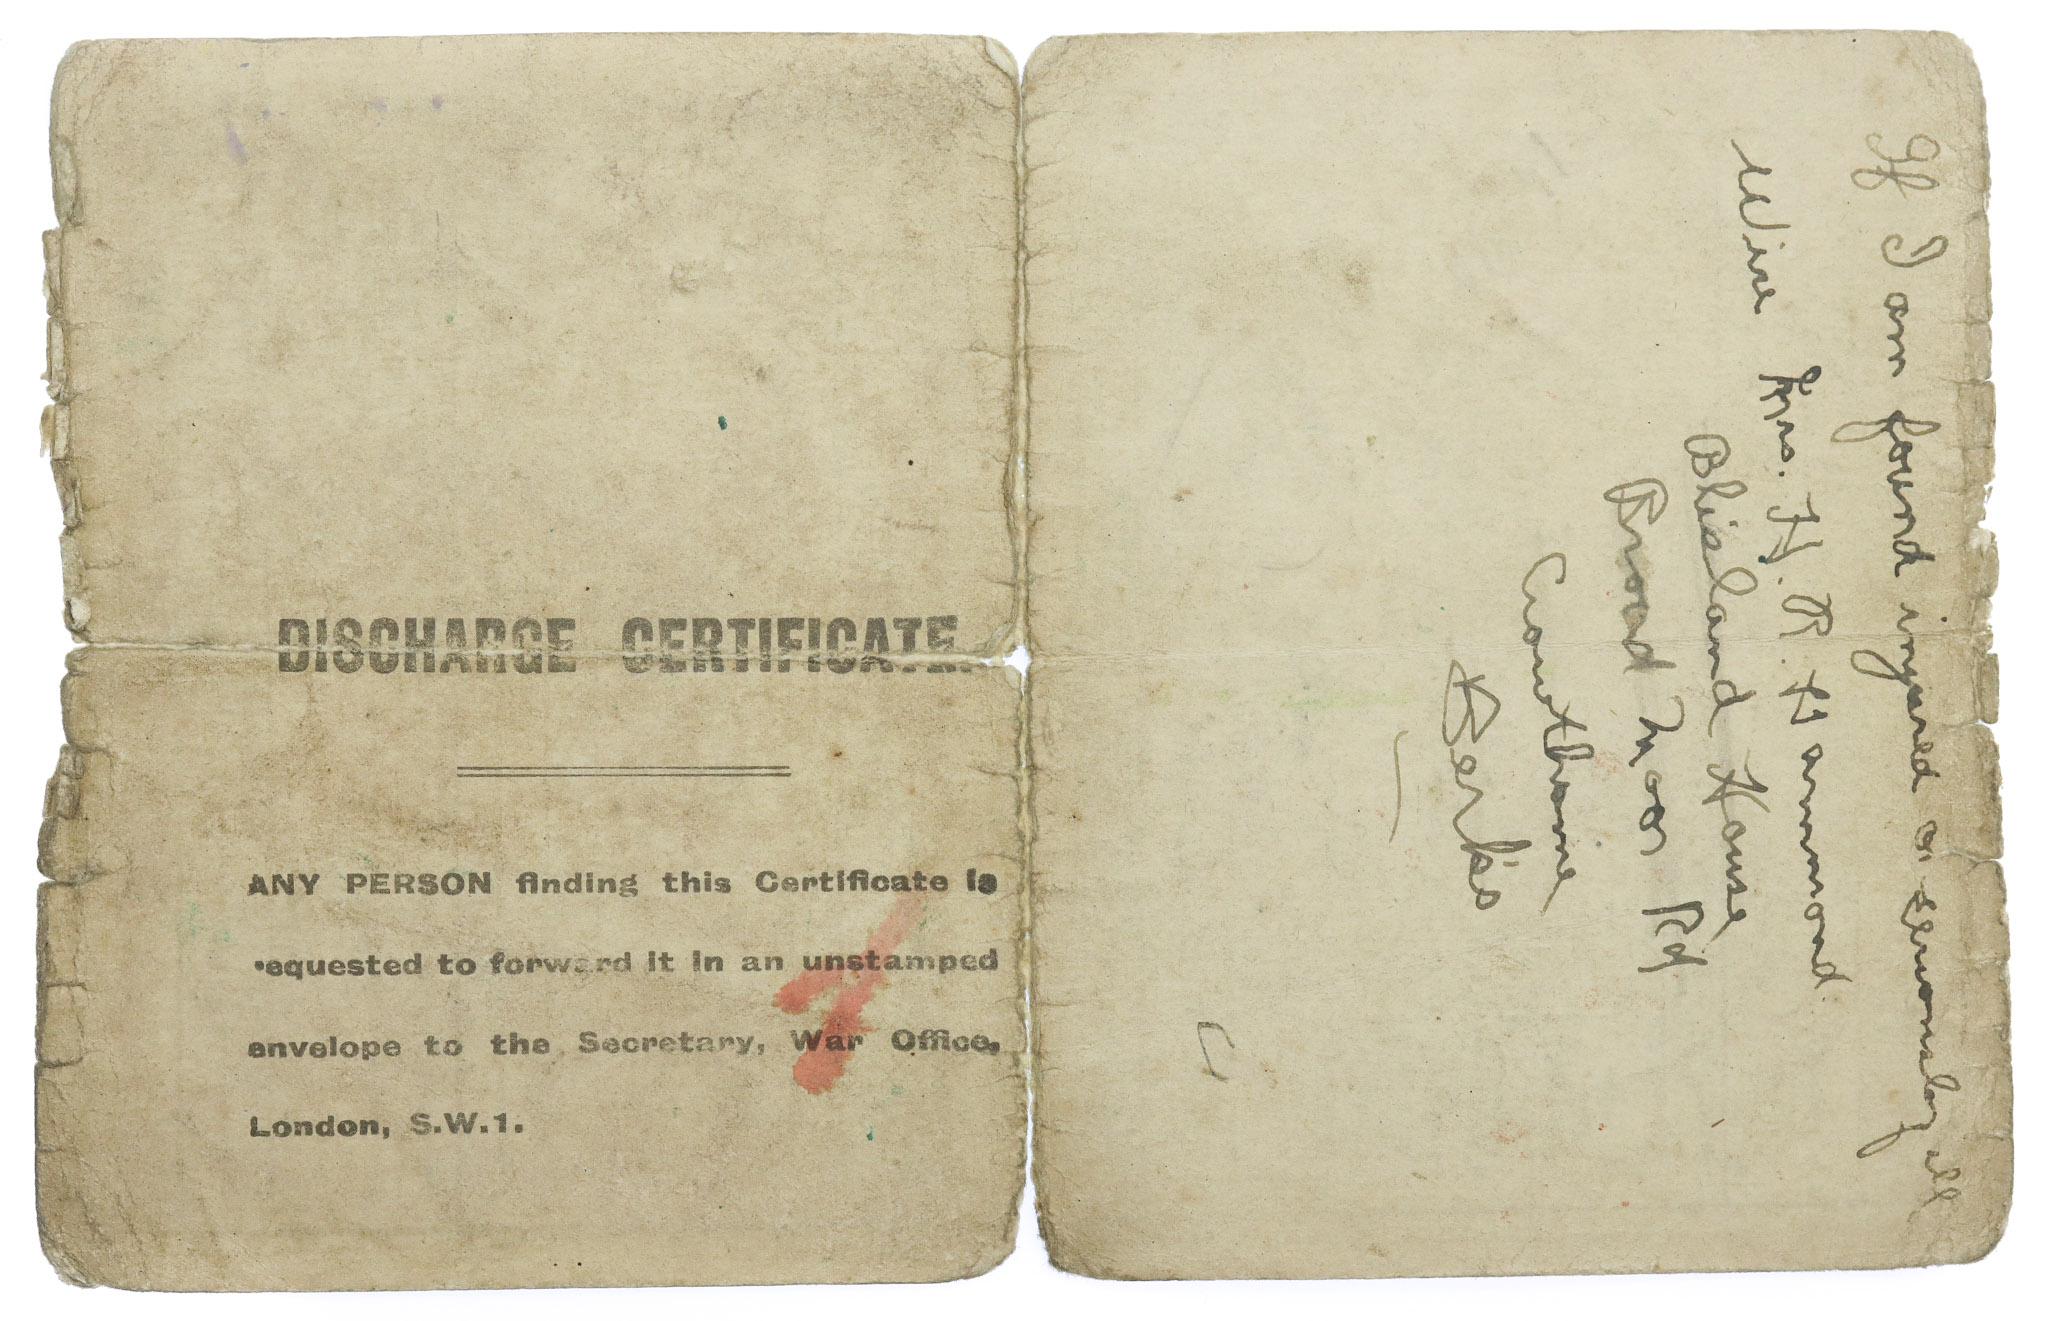 DISCHARGE CERTIFICATE.
ANY PERSON finding this Certificate is
requested to forward it in an unstamped
envelope to the Secretary, War Office,
London, S.W.1.
If I am found injured or seriously ill
Wire Mrs. H. R. Hammond
Blisland House
Broad Moor Rd
Crowthorne
Berks